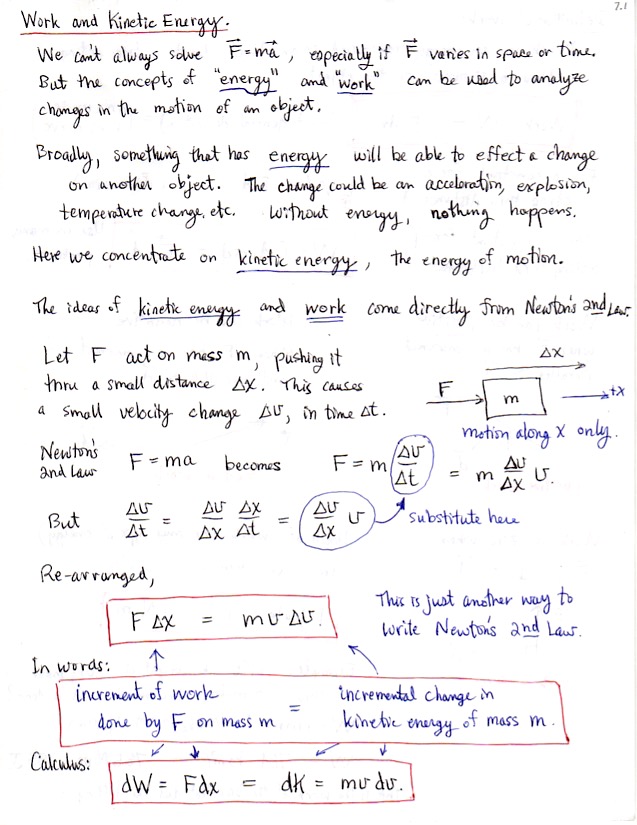 7.1
Work and Kinetic Energy.
We can't always solve F⃗ = ma⃗, especially if F⃗ varies in space or time.
But the concepts of "energy" and "work" can be used to analyze
changes in the motion of an object.
Broadly, something that has energy will be able to effect a change
on another object. The change could be an acceleration, explosion,
temperature change, etc. Without energy, nothing happens.
Here we concentrate on kinetic energy, the energy of motion.
The ideas of kinetic energy and work come directly from Newton's 2nd Law.
Let F act on mass m, pushing it
thru a small distance Δx. This causes
a small velocity change Δv, in time Δt.
Δx
F m +x
motion along x only.
Newton's 2nd Law F = ma becomes F = m Δv/Δt = m Δv/Δx v.
But Δv/Δt = Δv/Δx Δx/Δt = Δv/Δx v substitute here
Re-arranged,
F Δx = m v Δv.
This is just another way to
write Newton's 2nd Law.
In words:
increment of work done by F on mass m = incremental change in kinetic energy of mass m.
Calculus:
dW = Fdx = dK = mv dv.